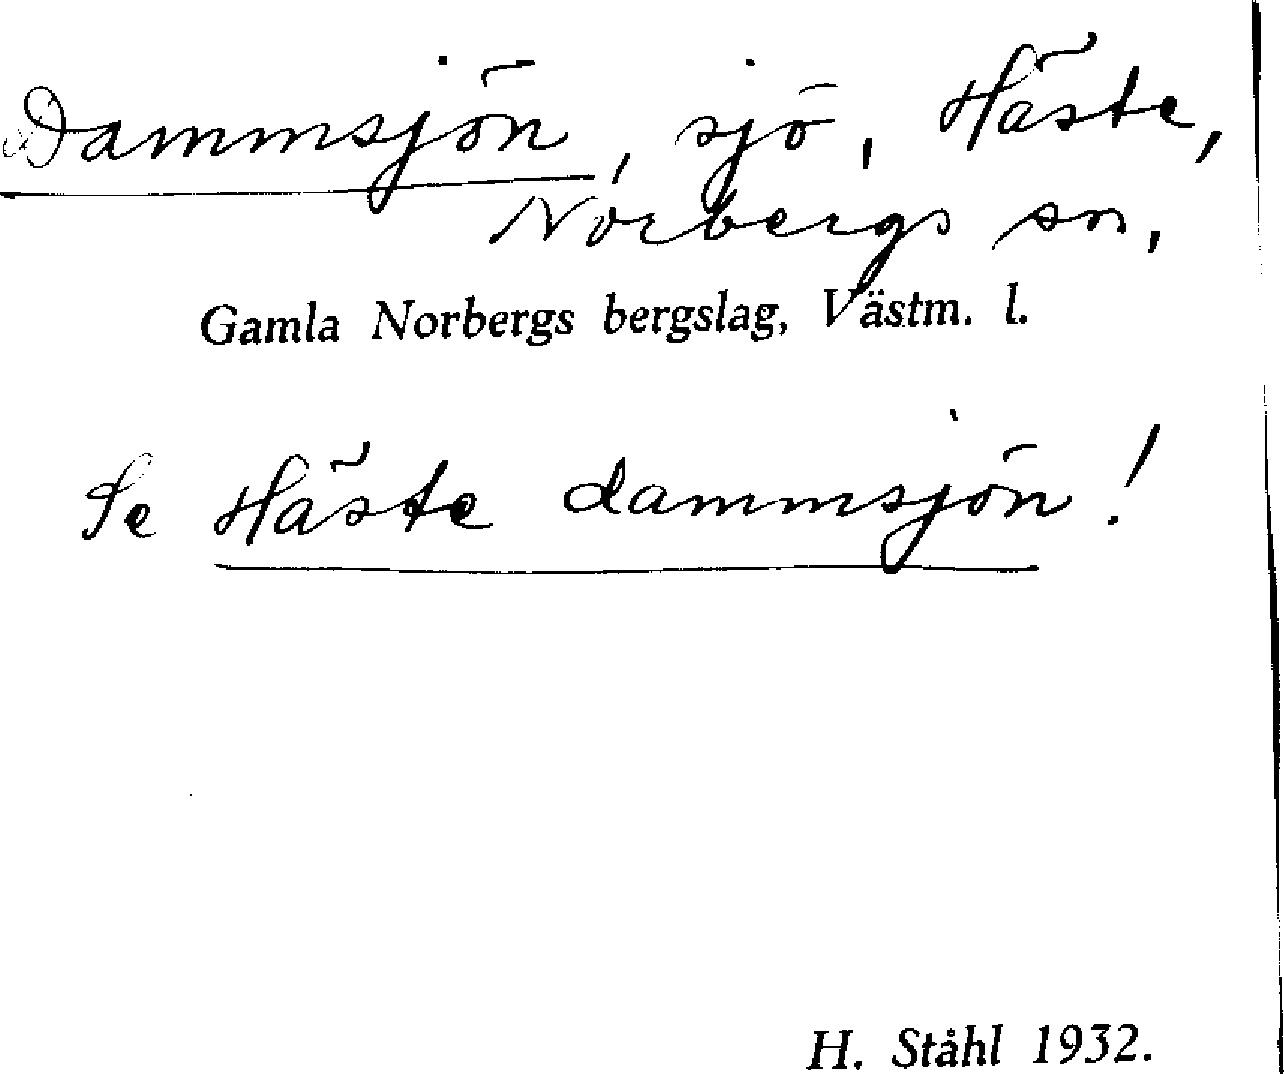 Dammsjön, sjö, Häste,
Norbergs sn,
Gamla Norbergs bergslag, Västm. l.
Se Häste dammsjön!
H. Ståhl 1932.